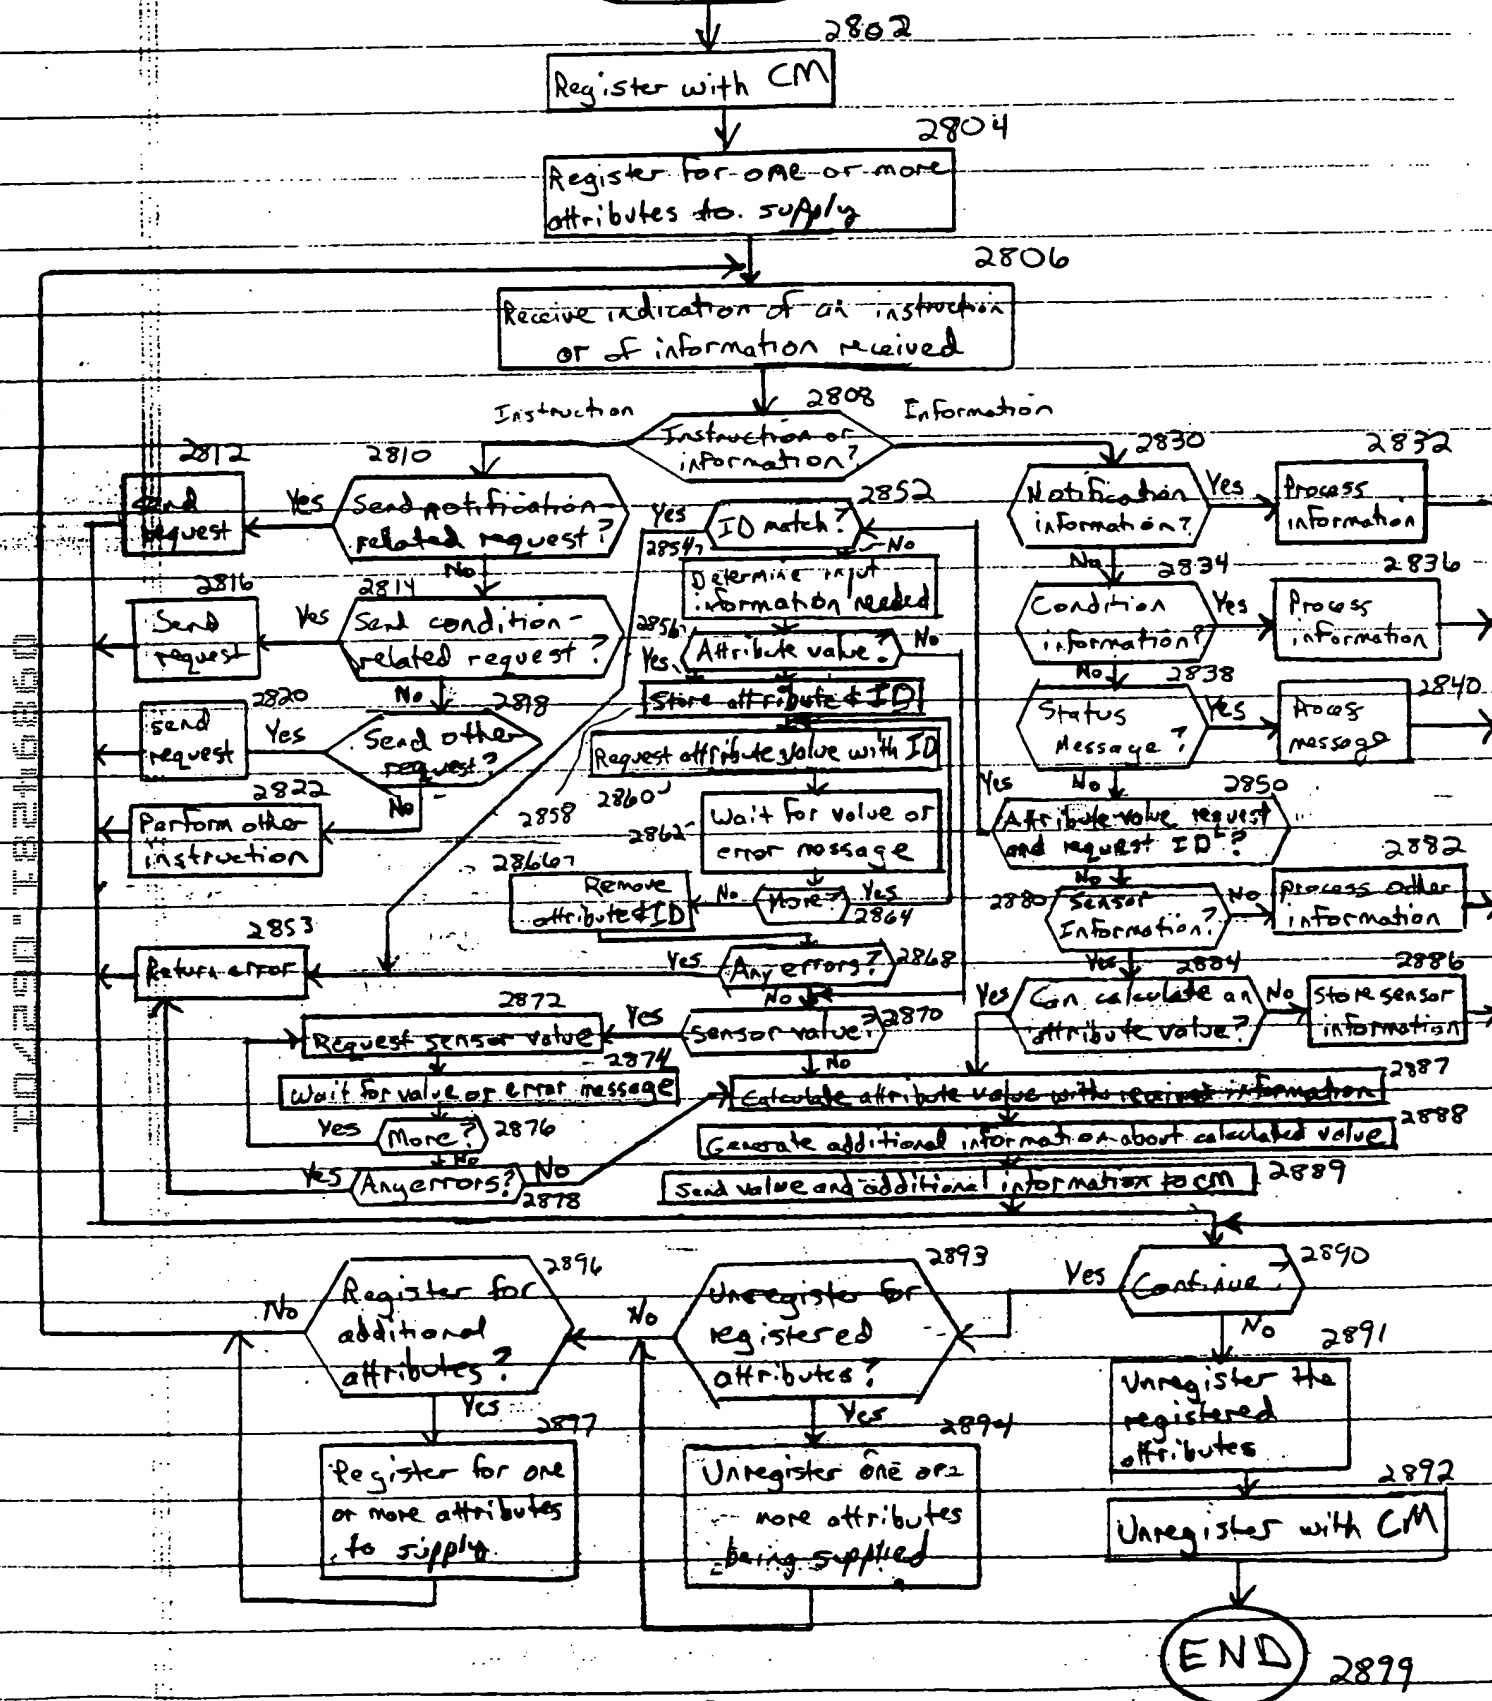 2802
Register with CM
2804
Register for one or more
attributes to supply
2806
Receive indication of an instruction
or of information received
2808
Instruction
Information
Instruction or
information?
2812
2810
Send
request
Yes
Send notification-
related request?
No
2816
2814
Send
request
Yes
Send condition-
related request?
No
2820
2818
Send
request
Yes
Send other
request?
No
2822
Perform other
instruction
2852
Yes
ID match?
2854
No
Determine input
information needed
2856
Attribute value?
No
Yes
Store attribute & ID
2858
Request attribute value with ID
2860
2862
Wait for value or
error message
2866
Remove
attribute & ID
No
More?
Yes
2864
2853
Return error
Yes
Any errors?
2868
No
2872
Request sensor value
Yes
Sensor value?
2870
No
2874
Wait for value or error message
Yes
More?
2876
No
Yes
Any errors?
No
2878
2830
2832
Notification
information?
Yes
Process
information
No
2834
2836
Condition
information?
Yes
Process
information
No
2838
2840
Status
Message?
Yes
Process
message
No
2850
Yes
Attribute value request
and request ID?
No
2882
2880
Sensor
Information?
No
Process other
information
Yes
2884
2886
Yes
Can calculate an
attribute value?
No
Store sensor
information
2887
Calculate attribute value with received information
2888
Generate additional information about calculated value
2889
Send value and additional information to CM
2890
Continue?
Yes
No
2893
Unregister for
registered
attributes?
No
Yes
2896
Register for
additional
attributes?
No
Yes
2897
Register for one
or more attributes
to supply
2894
Unregister one or
more attributes
being supplied
2891
Unregister the
registered
attributes
2892
Unregister with CM
END
2899